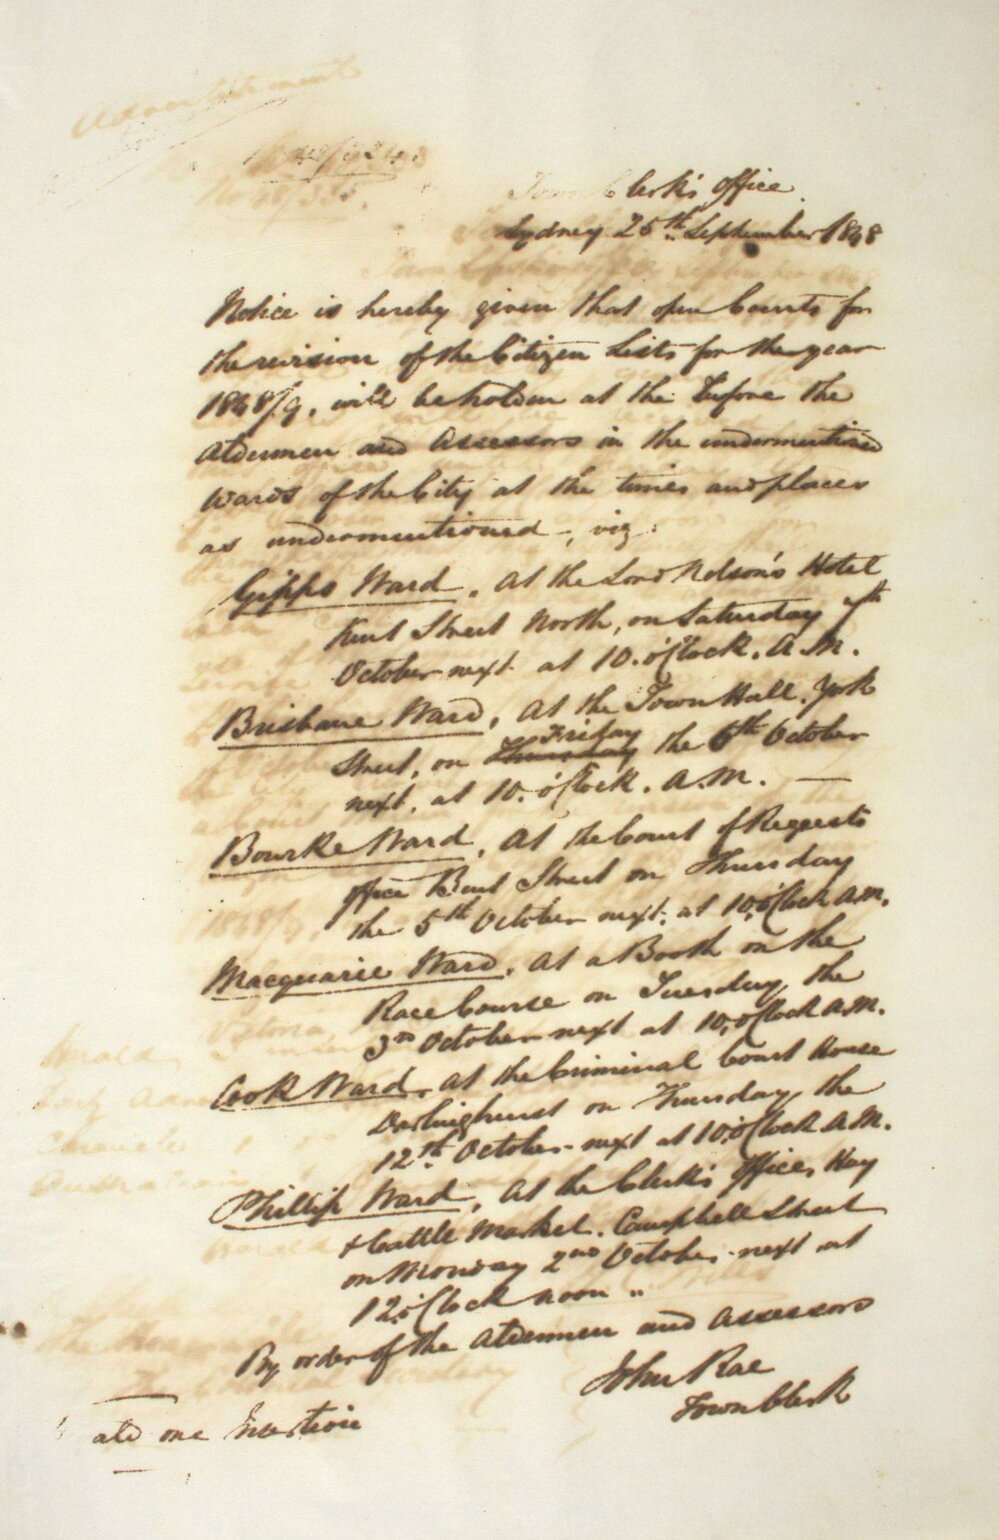 Advertisement
Town Clerk's Office
Sydney 25th September 1848
Notice is hereby given that open Courts for
the revision of the Citizen Lists for the year
1848/9, will be holden at the before the
Aldermen and Assessors in the undermentioned
Wards of the City at the times and places
as undermentioned, viz:
Gipps Ward, At the Lord Nelson's Hotel
Kent Street North, on Saturday 7th
October next at 10.o'Clock. A.M.
Brisbane Ward, At the Town Hall. York
Street, on Thursday Friday the 6th October
next, at 10.o'Clock. A.M.
Bourke Ward, At the Court of Requests
Office Bent Street on Thursday
the 5th October next, at 10,o'Clock A.M.
Macquarie Ward, At a Booth on the
Race Course on Tuesday, the
3rd October next at 10,o'Clock A.M.
Cook Ward, At the Criminal Court House
Darlinghurst on Thursday, the
12th October next at 10,o'Clock A.M.
Phillip Ward, At the Clerk's Office, Hay
& Cattle Market. Campbell Street
on Monday 2nd October next at
12,o'Clock noon "
By order of the Aldermen and Assessors
John Rae
Town Clerk
one Insertion